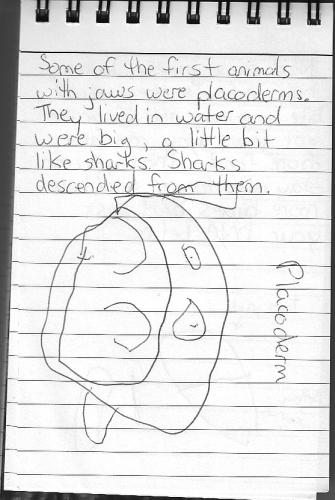 Some of the first animals
with jaws were placoderms.
They lived in water and
were big, a little bit
like sharks. Sharks
descended from them.
Placoderm